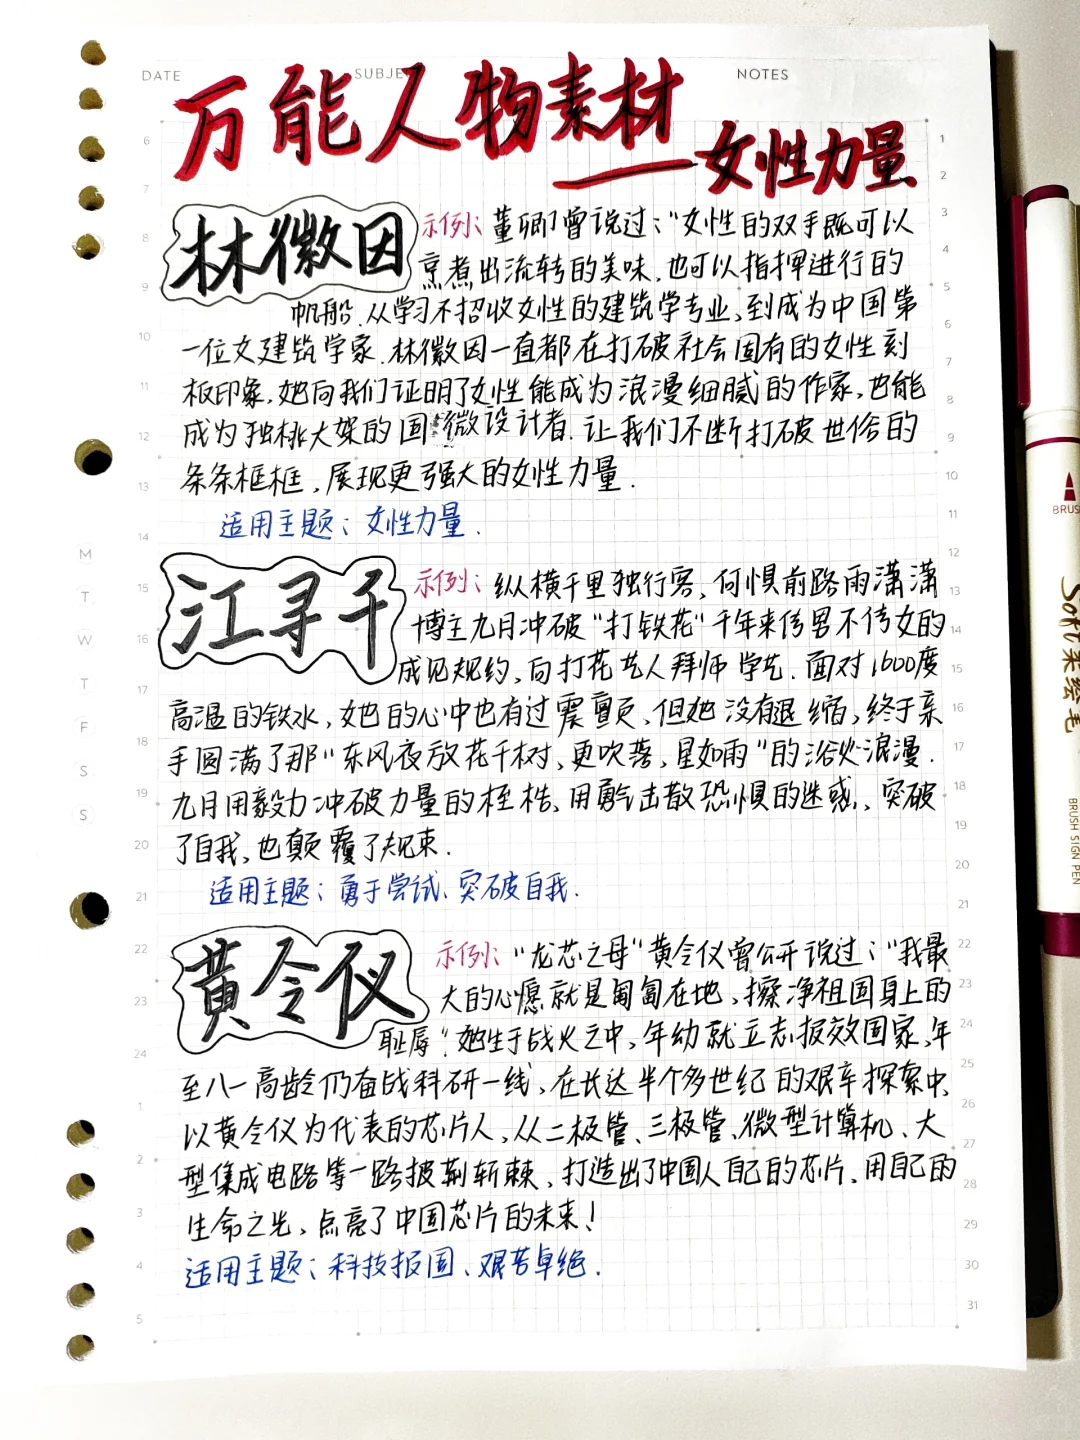 DATE SUBJE NOTES
万能人物素材
——女性力量
林徽因
示例：董卿曾说过："女性的双手既可以
烹煮出流转的美味，也可以指挥进行的
帆船．从学习不招收女性的建筑学专业，到成为中国第
一位女建筑学家．林徽因一直都在打破社会固有的女性刻
板印象，她向我们证明了女性能成为浪漫细腻的作家，也能
成为独挑大梁的国徽设计者．让我们不断打破世俗的
条条框框，展现更强大的女性力量．
适用主题：女性力量．
江寻千
示例：纵横千里独行客，何惧前路雨潇潇
博主九月冲破"打铁花"千年来传男不传女的
成见规约，向打花艺人拜师学艺．面对1600度
高温的铁水，她的心中也有过震颤，但她没有退缩，终于亲
手圆满了那"东风夜放花千树，更吹落，星如雨"的浴火浪漫．
九月用毅力冲破力量的桎梏，用勇气击散恐惧的迷惑，突破
了自我，也颠覆了规束．
适用主题：勇于尝试、突破自我．
黄令仪
示例："龙芯之母"黄令仪曾公开说过："我最
大的心愿就是匍匐在地，擦净祖国身上的
耻辱"．她生于战火之中，年幼就立志报效国家，年
至八一高龄仍奋战科研一线，在长达半个多世纪的艰辛探索中，
以黄令仪为代表的芯片人，从二极管、三极管、微型计算机、大
型集成电路等一路披荆斩棘，打造出了中国人自己的芯片，用自己的
生命之光，点亮了中国芯片的未来！
适用主题：科技报国、艰苦卓绝．
M
T
W
T
F
S
S
BRUS
Soft柔绘笔
BRUSH SIGN PEN